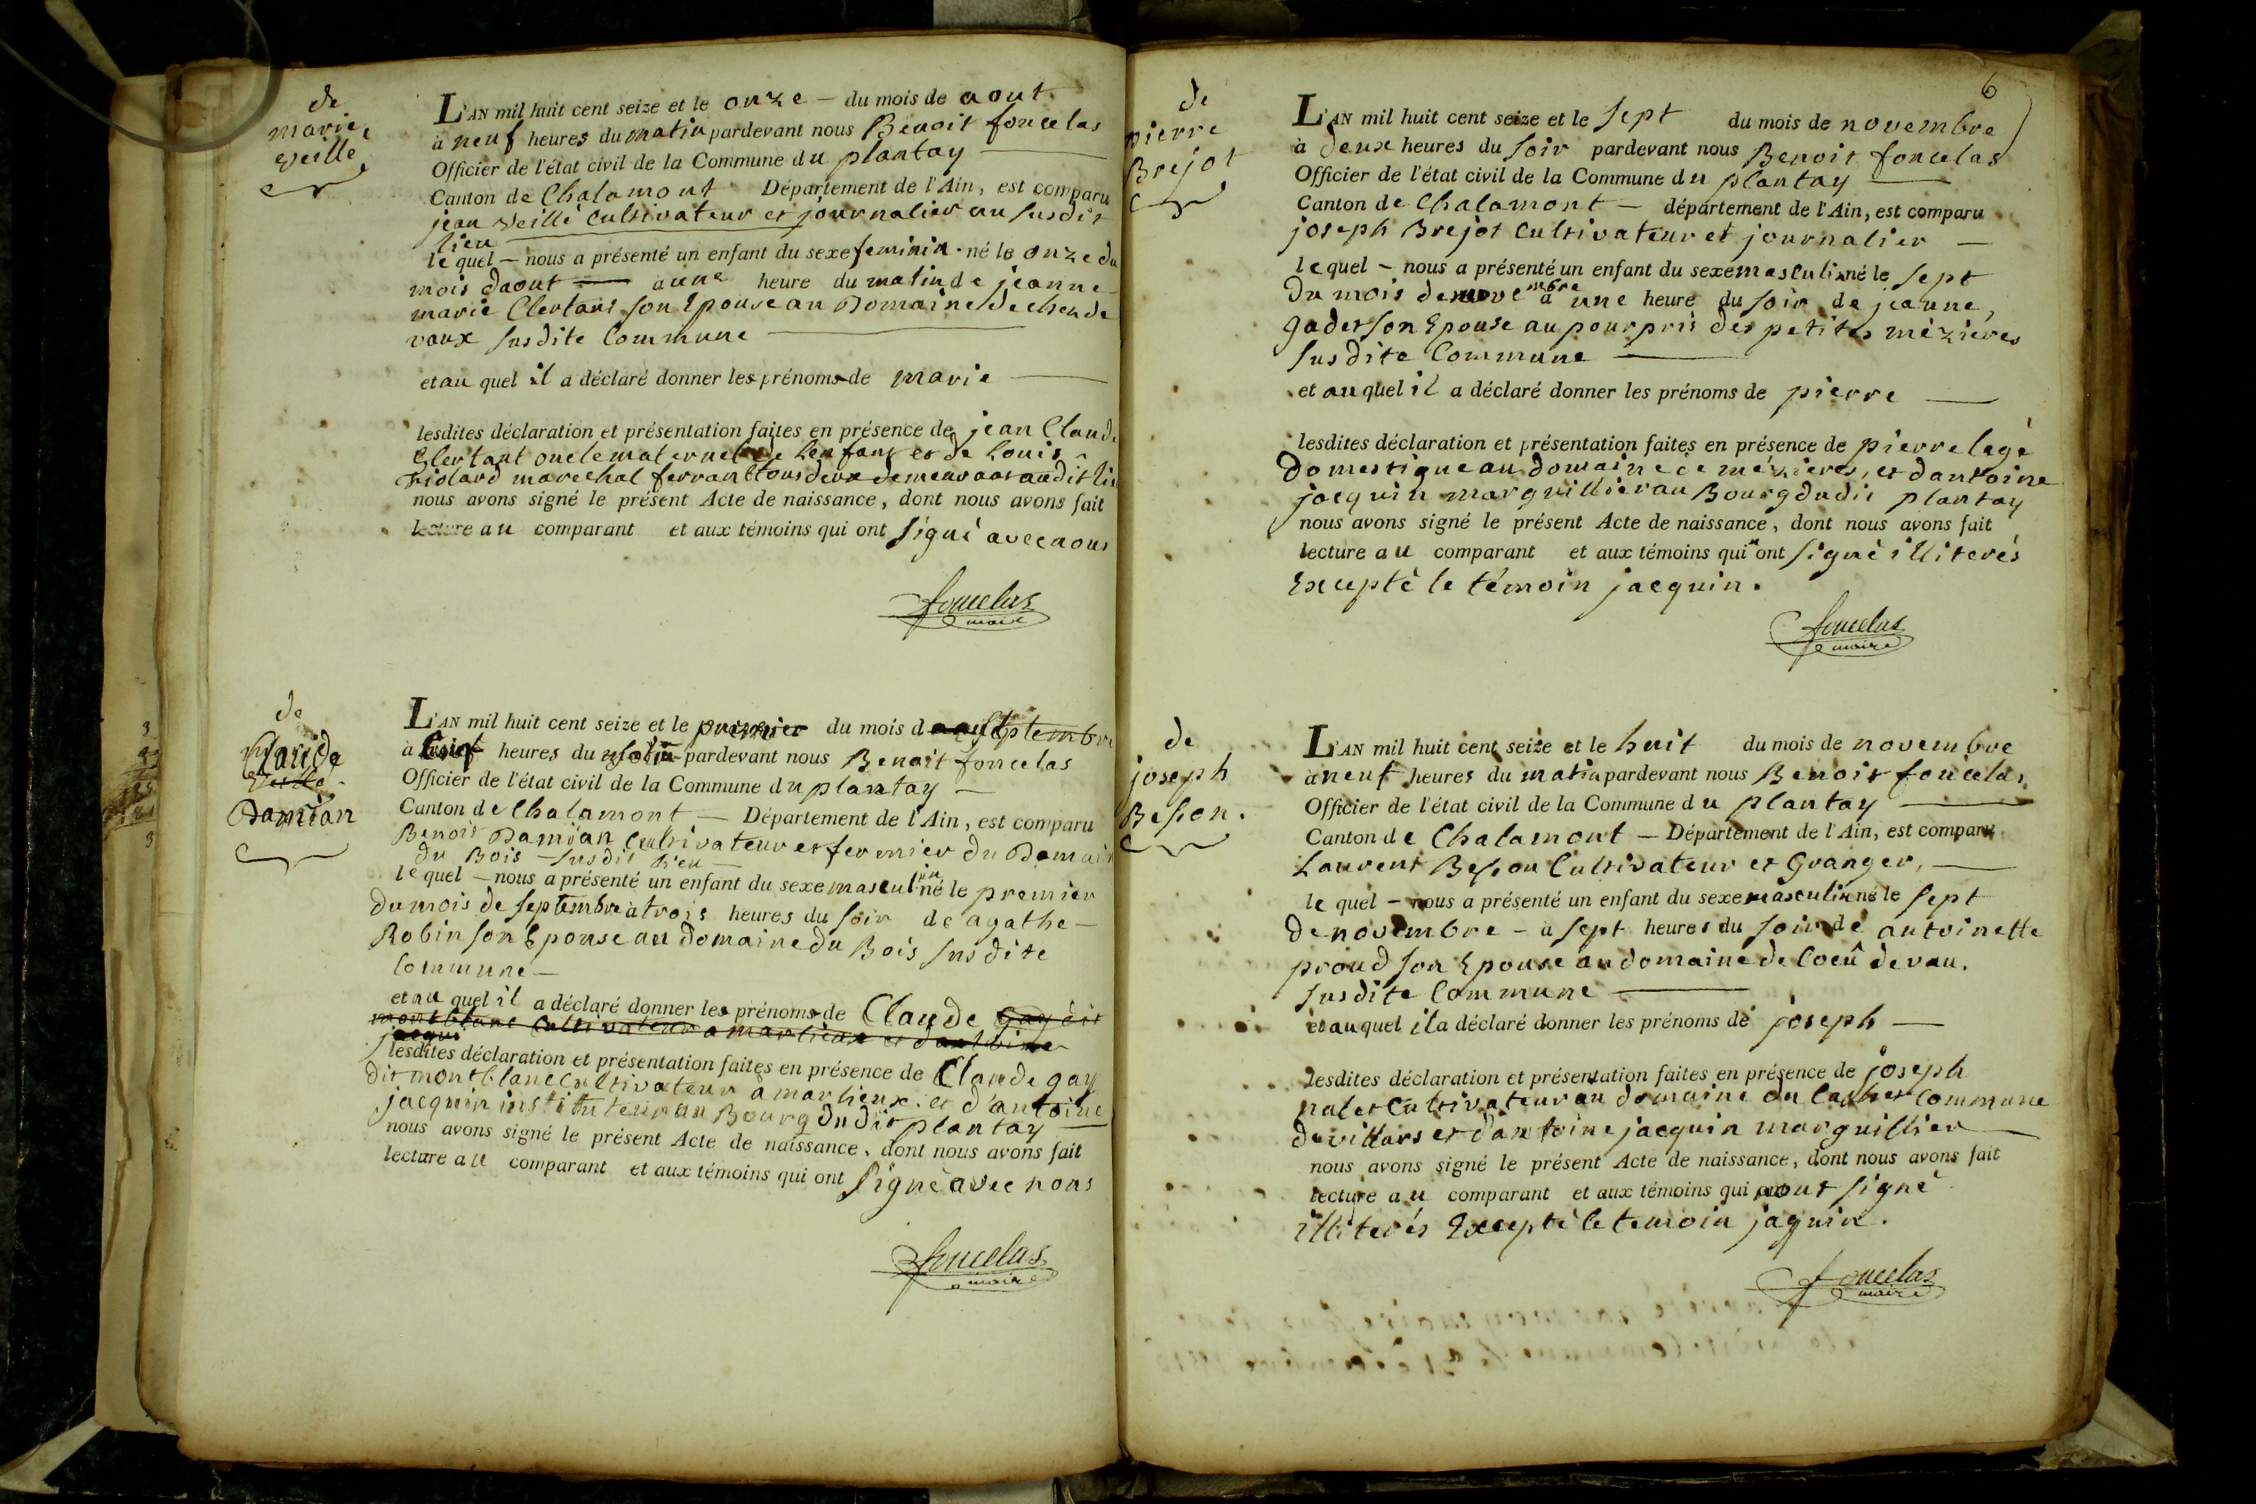 de
marie
veille
L'AN mil huit cent seize et le onze — du mois de aout
à neuf heures du matin pardevant nous Benoit foncelas
Officier de l'état civil de la Commune du plantay
Canton de Chalamont Département de l'Ain, est comparu
jean Veille Cultivateur et journalier au susdit
lieu
le quel — nous a présenté un enfant du sexe feminin né le onze du
mois daout — a une heure du matin de jeanne
marie Clertant son Epouse au Domaine de chende
vaux susdite Commune
et au quel il a déclaré donner les prénoms de marie
lesdites déclaration et présentation faites en présence de jean Claude
Clertant oncle maternel de lenfant et de Louis
marechal ferrant tous deux demeurant audit lieu
nous avons signé le présent Acte de naissance, dont nous avons fait
lecture au comparant et aux témoins qui ont signé avec nous
foncelas
maire
de
Claude
Veille
Damian
L'AN mil huit cent seize et le premier du mois d septembre
à heures du pardevant nous Benoit foncelas
Officier de l'état civil de la Commune du plantay —
Canton de Chalamont — Département de l'Ain, est comparu
Benoit Damian Cultivateur et fermier du Domaine
du Bois — susdit lieu —
le quel — nous a présenté un enfant du sexe masculin né le premier
du mois de septembre à trois heures du soir de agathe —
Robin son Epouse au domaine du Bois susdite
Commune —
et au quel il a déclaré donner les prénoms de Claude Gay dit
montblanc Cultivateur a marlieux et dantoine
jacqui
lesdites déclaration et présentation faites en présence de Claude gay
dit montblanc Cultivateur à marlieux et d'antoine
jacquin instituteur au Bourg dudit plantay —
nous avons signé le présent Acte de naissance, dont nous avons fait
lecture au comparant et aux témoins qui ont signé avec nous
foncelas
maire
6
de
pierre
Brejot
L'AN mil huit cent seize et le sept du mois de novembre
à deux heures du soir pardevant nous Benoit foncelas
Officier de l'état civil de la Commune du plantay —
Canton de Chalamont — département de l'Ain, est comparu
joseph Brejot Cultivateur et journalier —
le quel — nous a présenté un enfant du sexe masculin né le sept
du mois de novembre a une heure du soir de jeanne,
gadet son Epouse au pourpris des petites mézières
susdite Commune —
et au quel il a déclaré donner les prénoms de pierre —
lesdites déclaration et présentation faites en présence de pierre legé
domestique au domaine de mézieres, et dantoine
jacquin marguillier au Bourg dudit plantay
nous avons signé le présent Acte de naissance, dont nous avons fait
lecture au comparant et aux témoins qui n ont signé illiterés
Excepté le témoin jacquin.
foncelas
maire
de
joseph
Beson.
L'AN mil huit cent seize et le huit du mois de novembre
à neuf heures du matin pardevant nous Benoit foncelas
Officier de l'état civil de la Commune du plantay —
Canton de Chalamont — Département de l'Ain, est comparu
Laurent Beson Cultivateur et Granger, —
le quel — nous a présenté un enfant du sexe masculin né le sept
de novembre — a sept heures du soir de antoinette
proud son Epouse au domaine de Coeû devau.
susdite Commune —
et au quel il a déclaré donner les prénoms de joseph —
lesdites déclaration et présentation faites en présence de joseph
nalet Cultivateur au domaine du Commune
de villars et dantoine jacquin marguillier —
nous avons signé le présent Acte de naissance, dont nous avons fait
lecture au comparant et aux témoins qui nont signé
illiterés Excepté le temoin jaquin.
foncelas
maire